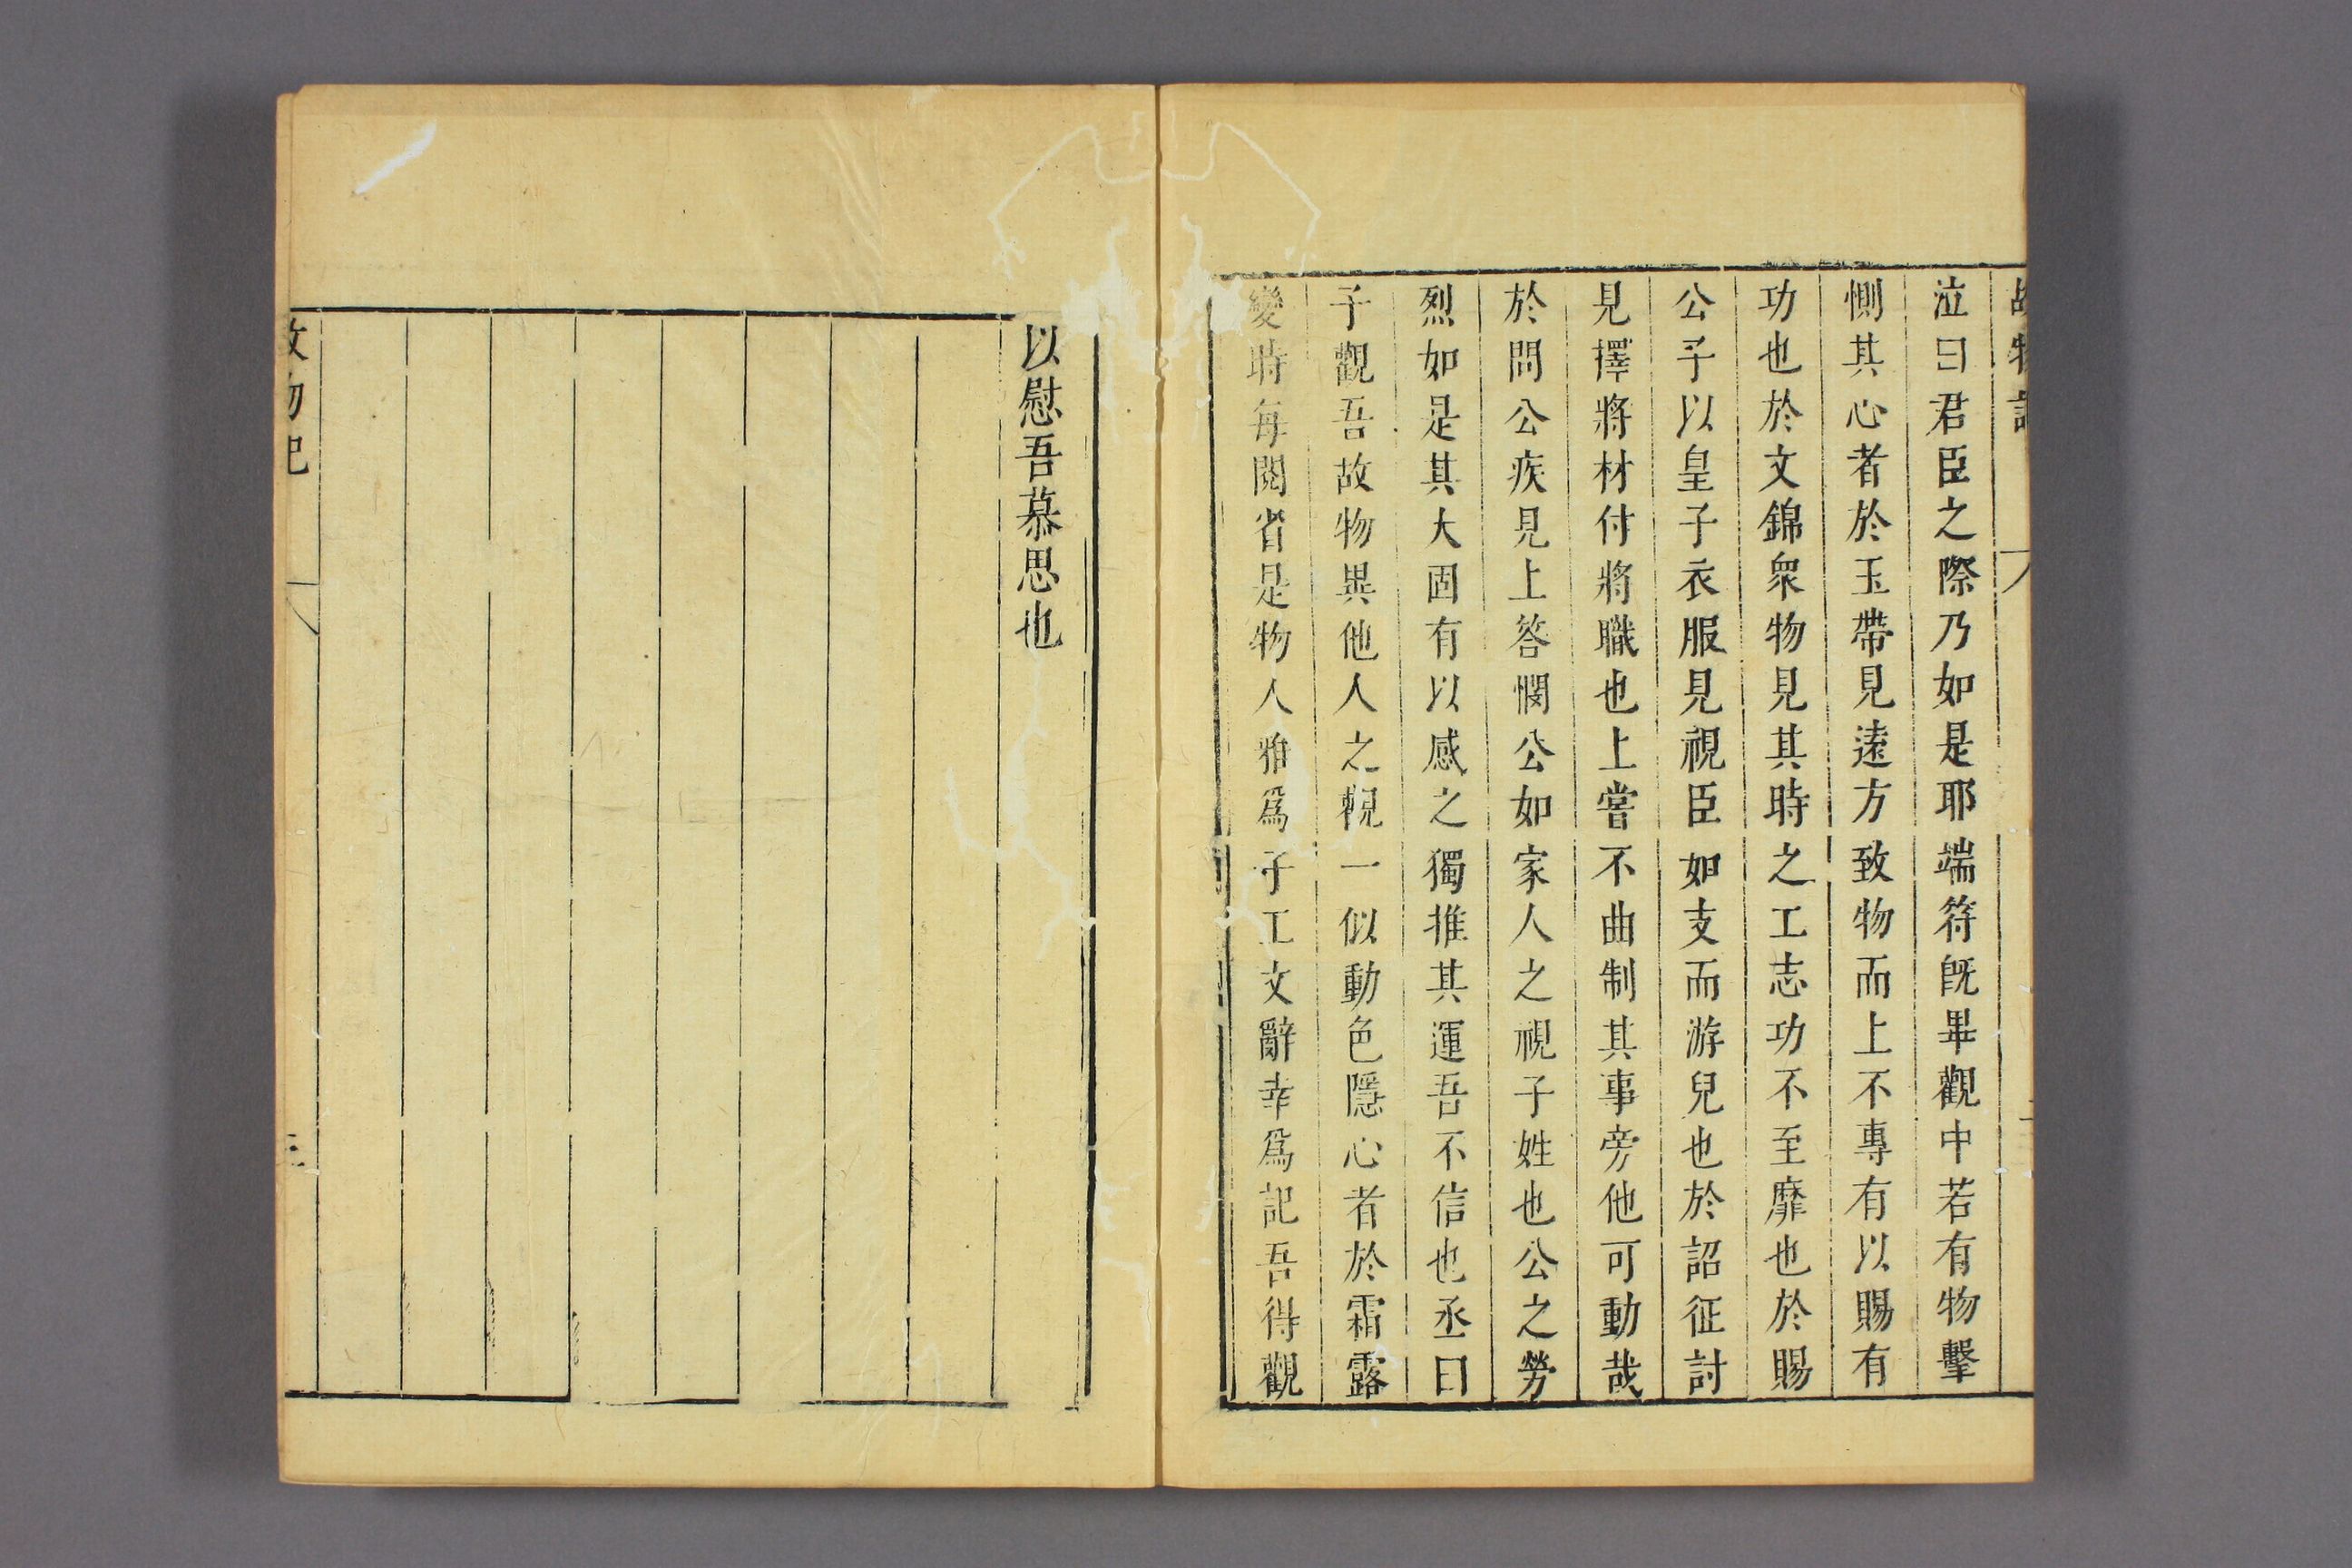 故物記
泣曰君臣之際乃如是耶端符旣畢觀中若有物擊
惻其心者於玉帶見遠方致物而上不專有以賜有
功也於文錦衆物見其時之工志功不至靡也於賜
公子以皇子衣服見視臣如支而游兒也於詔征討
見擇將材付將職也上嘗不曲制其事旁他可動哉
於問公疾見上答憫公如家人之視子姓也公之勞
烈如是其大固有以感之獨推其運吾不信也丞曰
子觀吾故物異他人之覩一似動色隱心者於霜露
變時每閱省是物人雅爲子工文辭幸爲記吾得觀
以慰吾慕思也
故物記
三